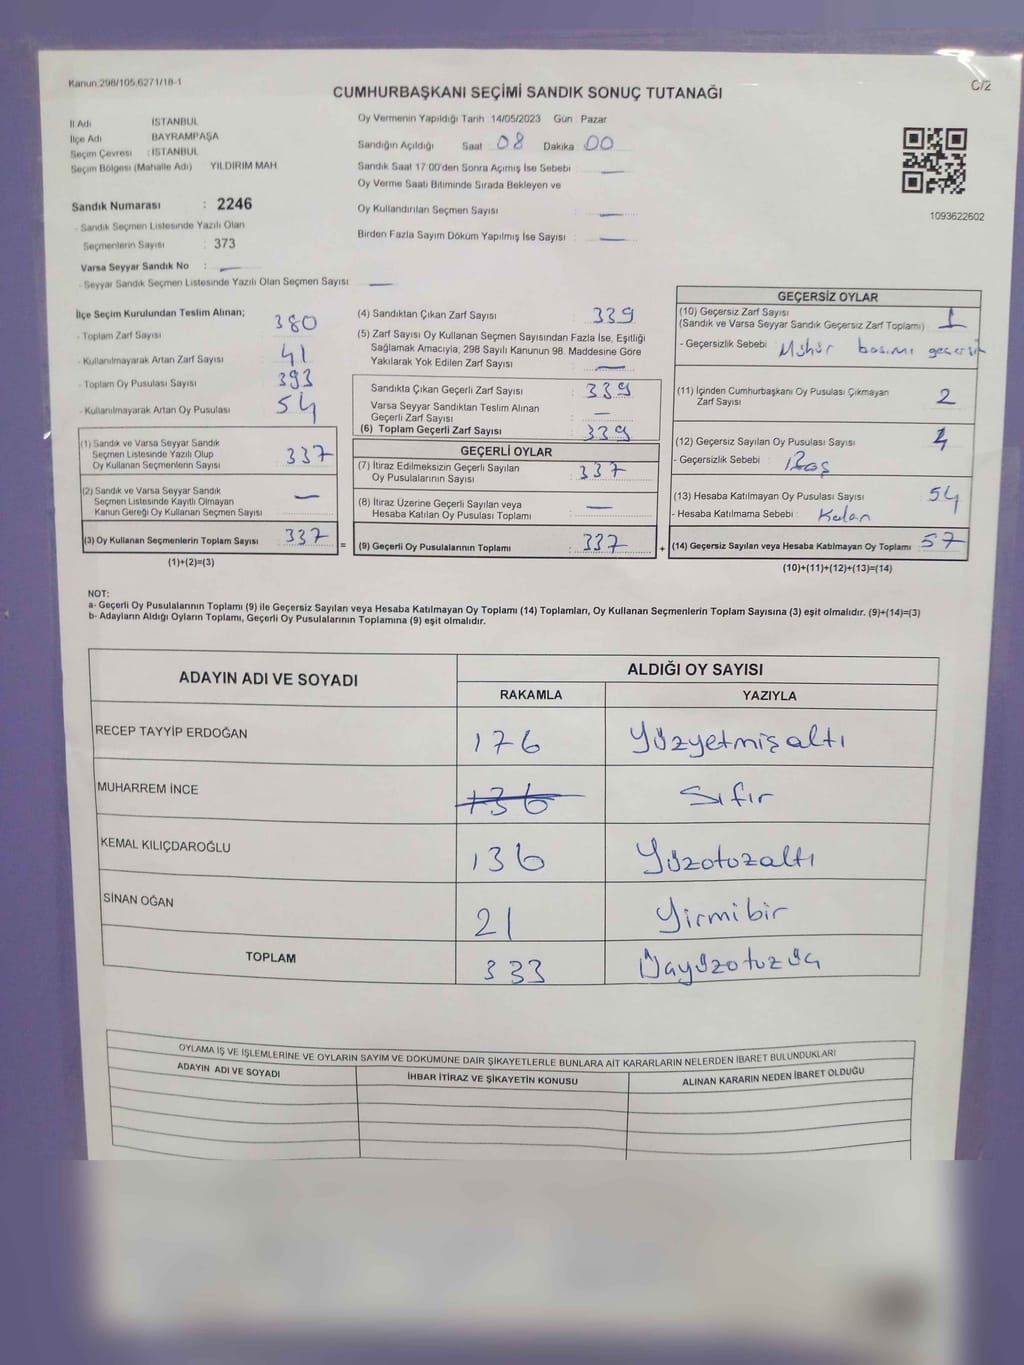 Kanun 298/105,6271/18-1
C/2
CUMHURBAŞKANI SEÇİMİ SANDIK SONUÇ TUTANAĞI
İl Adı İSTANBUL
İlçe Adı BAYRAMPAŞA
Seçim Çevresi : İSTANBUL
Seçim Bölgesi (Mahalle Adı) YILDIRIM MAH
Sandık Numarası : 2246
- Sandık Seçmen Listesinde Yazılı Olan
Seçmenlerin Sayısı : 373
Varsa Seyyar Sandık No : —
- Seyyar Sandık Seçmen Listesinde Yazılı Olan Seçmen Sayısı —
Oy Vermenin Yapıldığı Tarih 14/05/2023 Gün Pazar
Sandığın Açıldığı Saat 08 Dakika 00
Sandık Saat 17:00'den Sonra Açımış İse Sebebi —
Oy Verme Saati Bitiminde Sırada Bekleyen ve
Oy Kullandırılan Seçmen Sayısı —
Birden Fazla Sayım Döküm Yapılmış İse Sayısı : —
1093622602
İlçe Seçim Kurulundan Teslim Alınan;
- Toplam Zarf Sayısı 380
- Kullanılmayarak Artan Zarf Sayısı 41
- Toplam Oy Pusulası Sayısı 393
- Kullanılmayarak Artan Oy Pusulası 54
(1) Sandık ve Varsa Seyyar Sandık
Seçmen Listesinde Yazılı Olup
Oy Kullanan Seçmenlerin Sayısı 337
(2) Sandık ve Varsa Seyyar Sandık
Seçmen Listesinde Kayıtlı Olmayan
Kanun Gereği Oy Kullanan Seçmen Sayısı —
(3) Oy Kullanan Seçmenlerin Toplam Sayısı 337
(1)+(2)=(3)
=
(4) Sandıktan Çıkan Zarf Sayısı 339
(5) Zarf Sayısı Oy Kullanan Seçmen Sayısından Fazla İse, Eşitliği
Sağlamak Amacıyla, 298 Sayılı Kanunun 98. Maddesine Göre
Yakılarak Yok Edilen Zarf Sayısı —
Sandıkta Çıkan Geçerli Zarf Sayısı : 339
Varsa Seyyar Sandıktan Teslim Alınan
Geçerli Zarf Sayısı : —
(6) Toplam Geçerli Zarf Sayısı : 339
GEÇERLİ OYLAR
(7) İtiraz Edilmeksizin Geçerli Sayılan
Oy Pusulalarının Sayısı : 337
(8) İtiraz Üzerine Geçerli Sayılan veya
Hesaba Katılan Oy Pusulası Toplamı : —
(9) Geçerli Oy Pusulalarının Toplamı : 337
+
GEÇERSİZ OYLAR
(10) Geçersiz Zarf Sayısı
(Sandık ve Varsa Seyyar Sandık Geçersiz Zarf Toplamı) : 1
- Geçersizlik Sebebi : Mühür basımı geçersiz
(11) İçinden Cumhurbaşkanı Oy Pusulası Çıkmayan
Zarf Sayısı : 2
(12) Geçersiz Sayılan Oy Pusulası Sayısı
- Geçersizlik Sebebi : Boş
(13) Hesaba Katılmayan Oy Pusulası Sayısı 54
- Hesaba Katılmama Sebebi : Kalan
(14) Geçersiz Sayılan veya Hesaba Katılmayan Oy Toplamı : 57
(10)+(11)+(12)+(13)=(14)
NOT:
a- Geçerli Oy Pusulalarının Toplamı (9) ile Geçersiz Sayılan veya Hesaba Katılmayan Oy Toplamı (14) Toplamları, Oy Kullanan Seçmenlerin Toplam Sayısına (3) eşit olmalıdır. (9)+(14)=(3)
b- Adayların Aldığı Oyların Toplamı, Geçerli Oy Pusulalarının Toplamına (9) eşit olmalıdır.
ADAYIN ADI VE SOYADI ALDIĞI OY SAYISI
RAKAMLA YAZIYLA
RECEP TAYYİP ERDOĞAN 176 Yüzyetmişaltı
MUHARREM İNCE 136 Sıfır
KEMAL KILIÇDAROĞLU 136 Yüzotuzaltı
SİNAN OĞAN 21 Yirmibir
TOPLAM 333 Üçyüzotuzüç
OYLAMA İŞ VE İŞLEMLERİNE VE OYLARIN SAYIM VE DÖKÜMÜNE DAİR ŞİKAYETLERLE BUNLARA AİT KARARLARIN NELERDEN İBARET BULUNDUKLARI
ADAYIN ADI VE SOYADI İHBAR İTİRAZ VE ŞİKAYETİN KONUSU ALINAN KARARIN NEDEN İBARET OLDUĞU